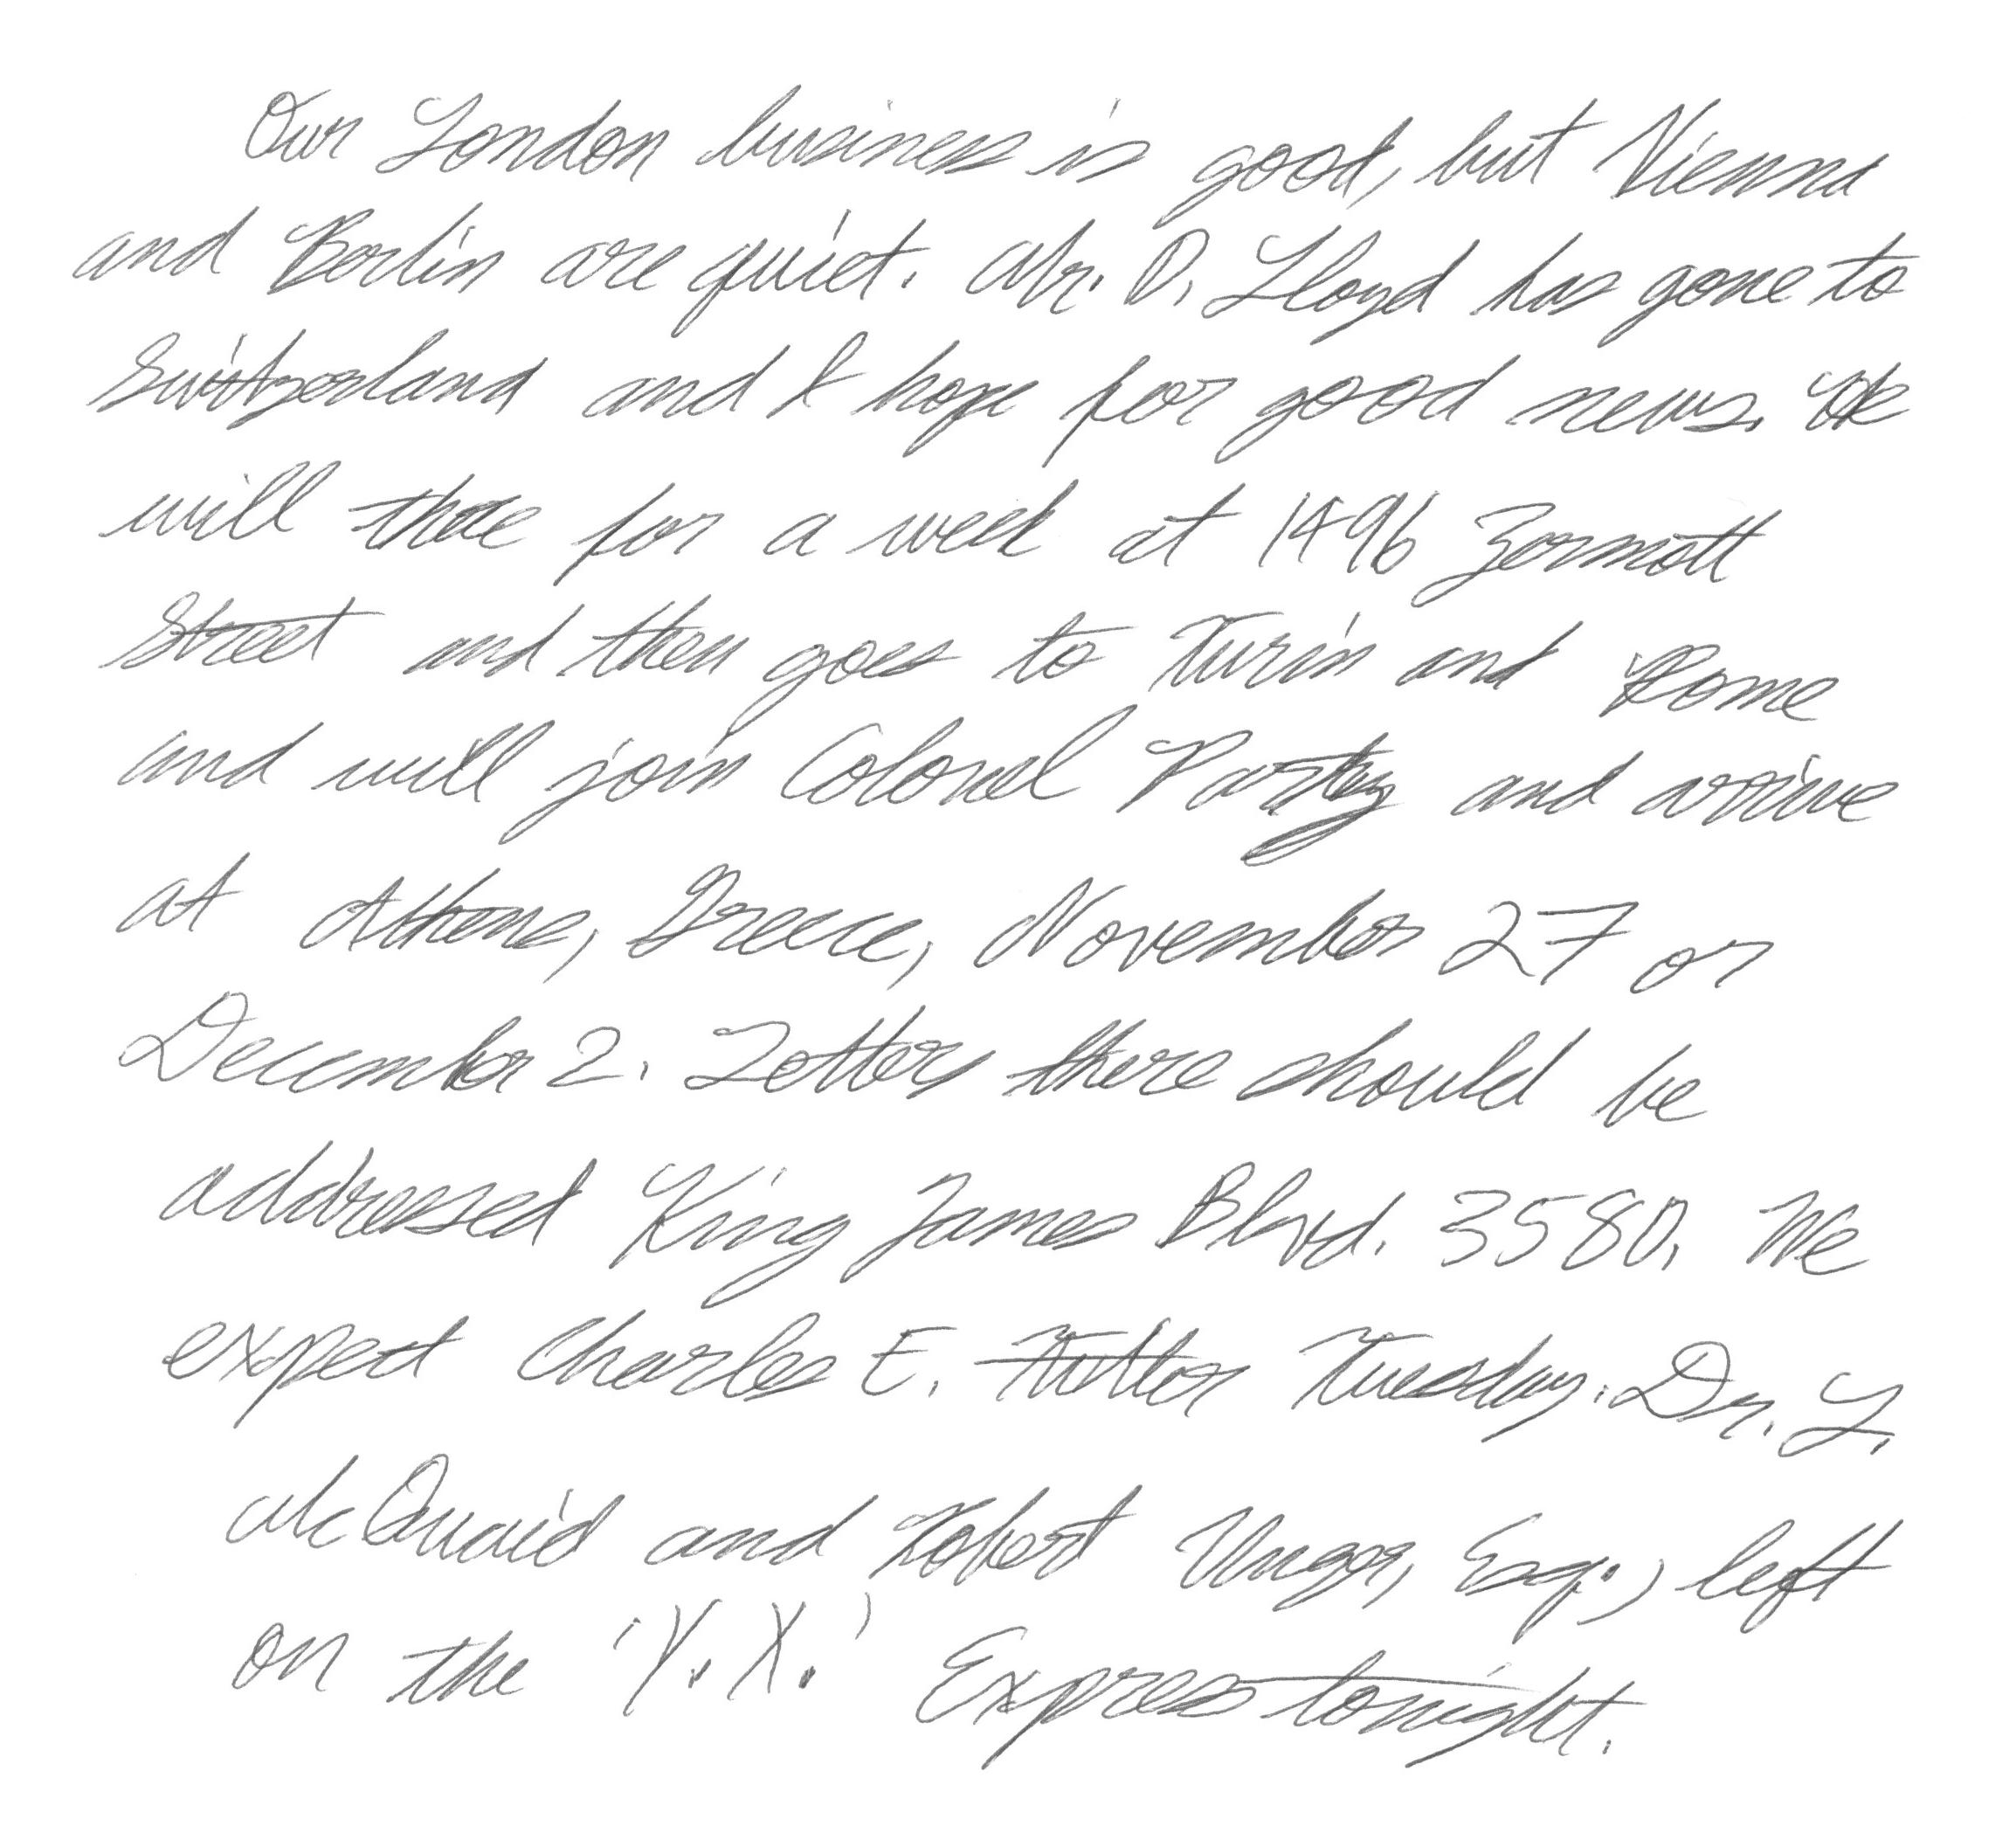 Our London business is good, but Vienna
and Berlin are quiet. Mr. D. Lloyd has gone to
Switzerland and I hope for good news. He
will there for a week at 1496 Zermott
Street and then goes to Turin and Rome
and will join Colonel Party and arrive
at Athens, Greece, November 27 or
December 2. Letters there should be
addressed King James Blvd. 3580. We
expect Charles E. Fuller Tuesday. Dr. L.
McQuaid and Robert Unger, Esq., left
on the 'Y.X.' Express tonight.